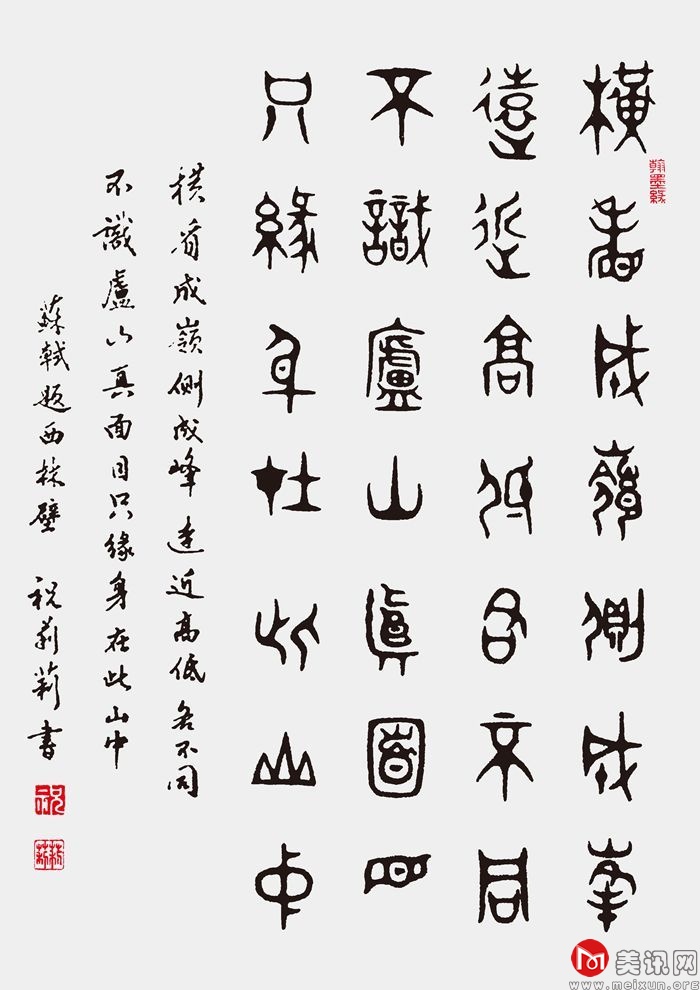 橫看成嶺側成峯
遠近高低各不同
不識廬山真面目
只緣身在此山中
橫看成嶺側成峰遠近高低各不同
不識廬山真面目只緣身在此山中
蘇軾題西林壁 祝莉莉書
翰墨緣
祝
美讯网
www.meixun.org